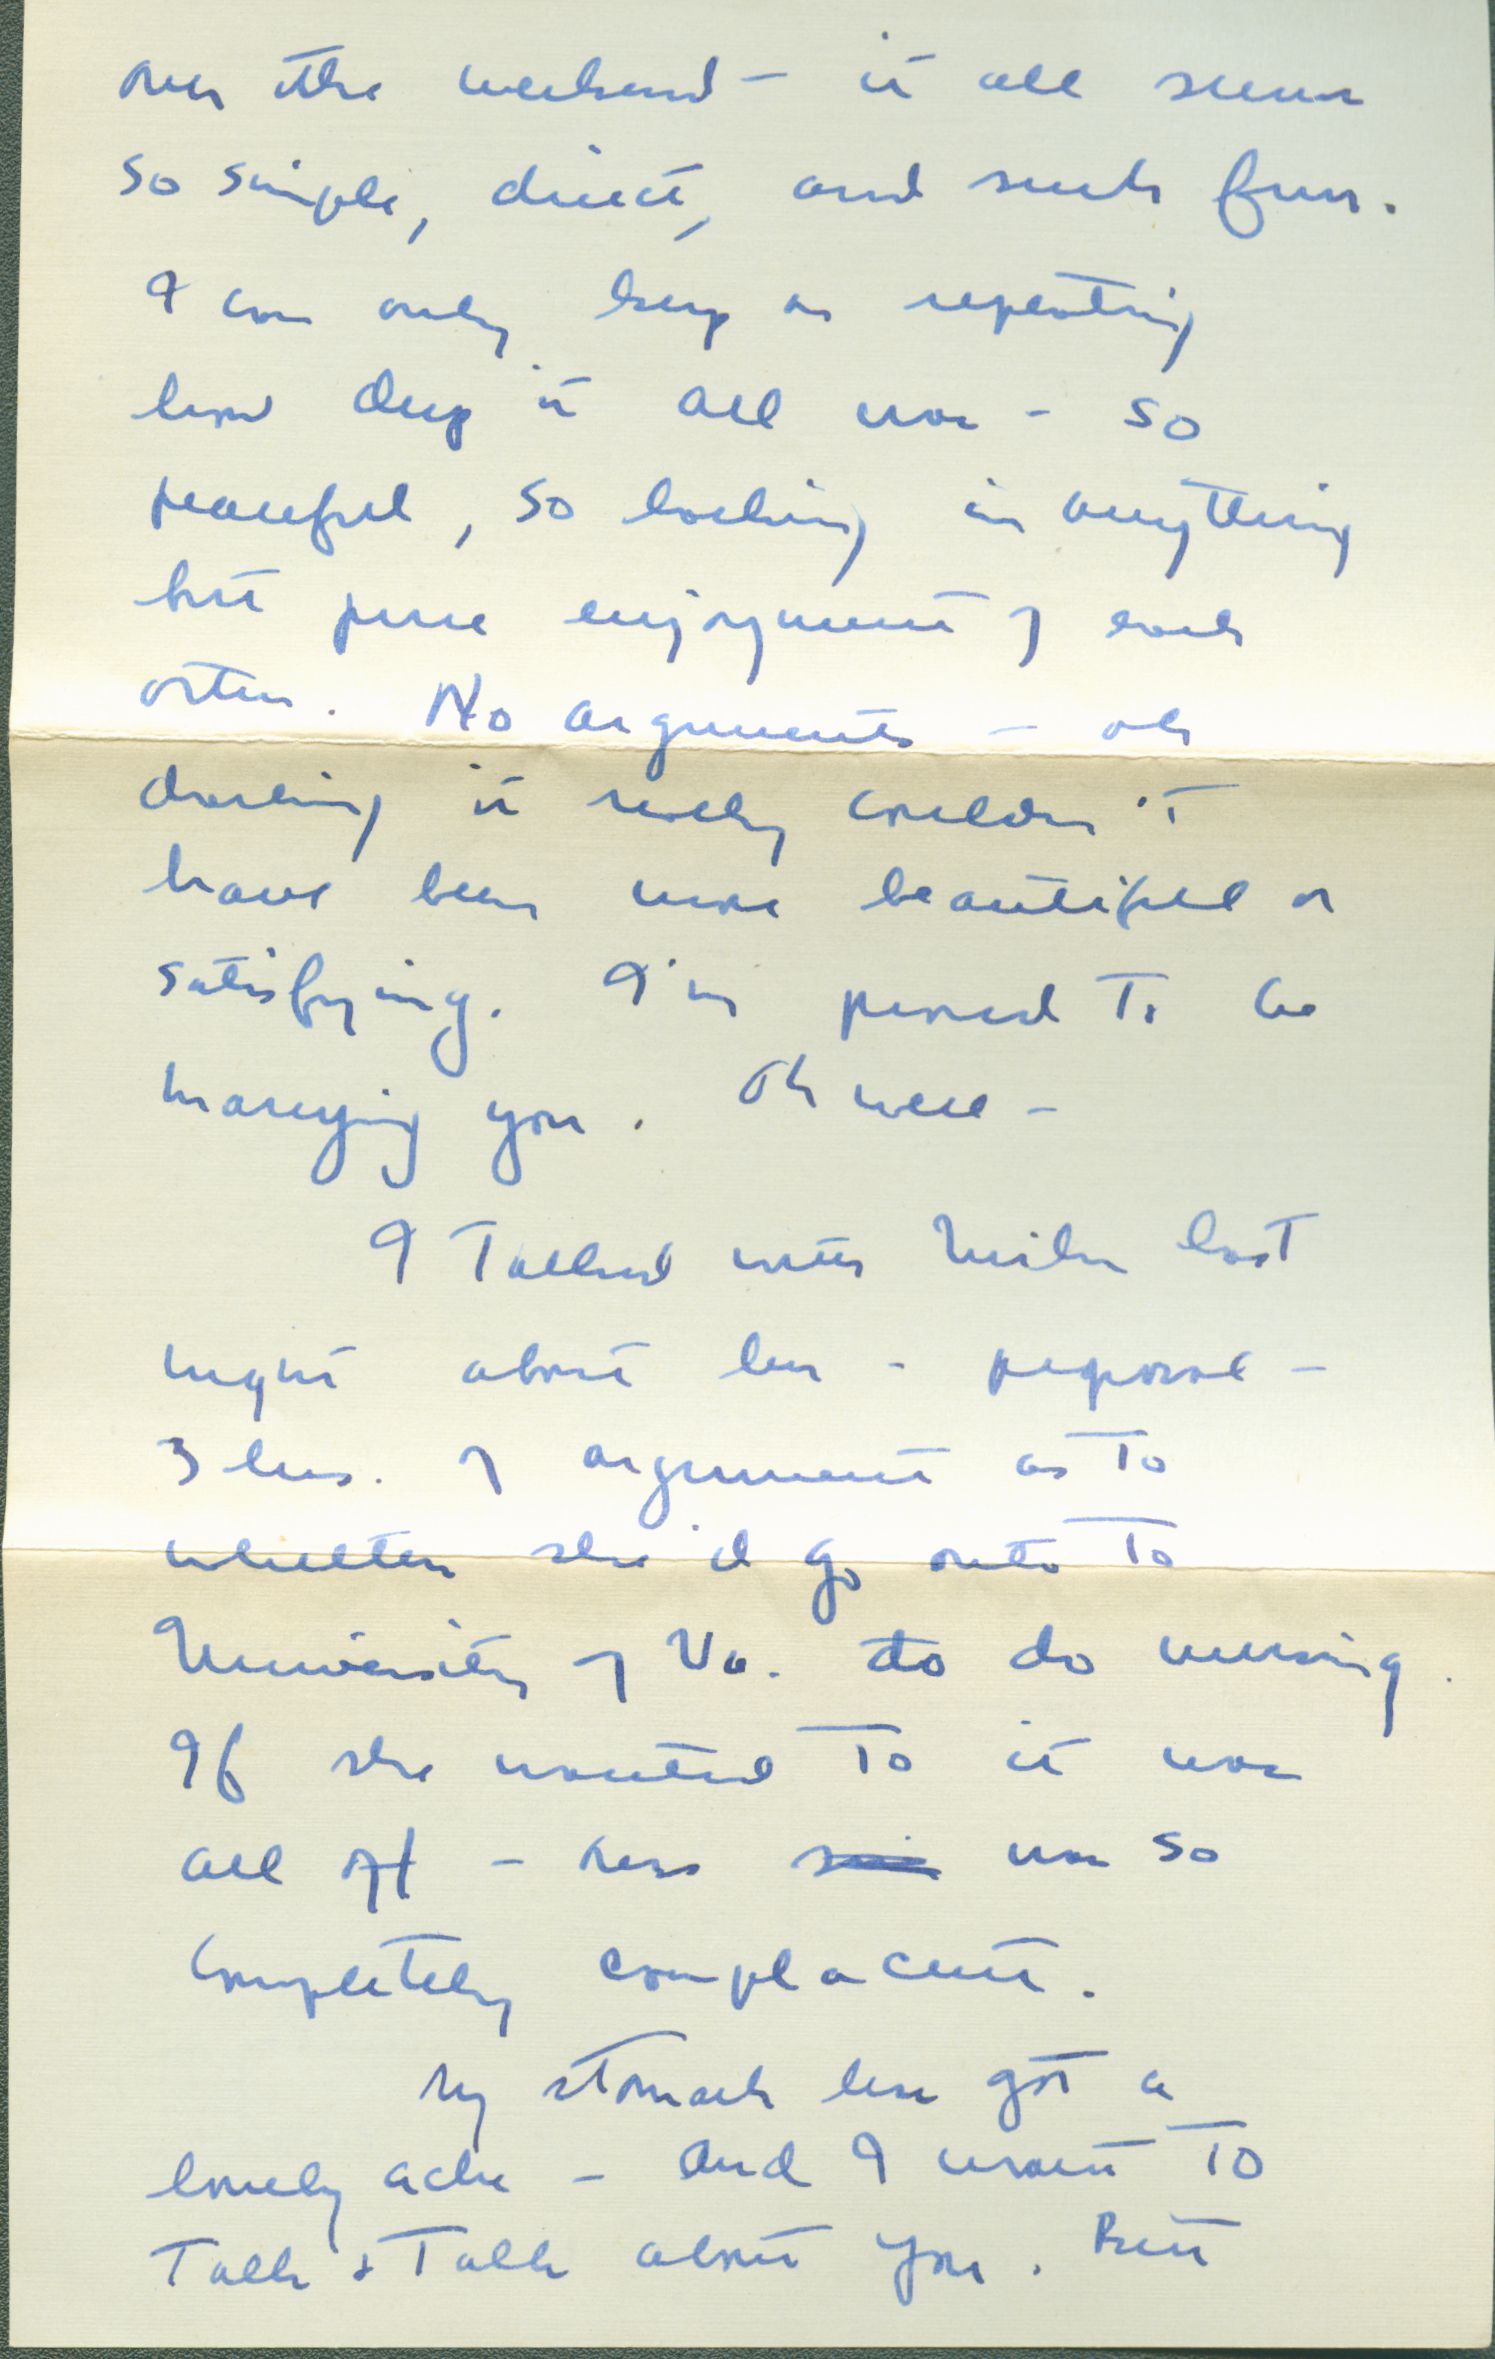 over the weekend - it all seems
so simple, direct, and such fun.
I can only keep on repeating
how deep it all was - so
peaceful, so lacking in anything
but pure enjoyment of each
other. No arguments - oh
darling it really couldn't
have been more beautiful or
satisfying. I'm proud to be
marrying you. Oh well -
I talked with last
night about her - proposal -
3 hrs. of argument as to
whether she'd go onto to
University of Va. to do nursing.
If she wanted to it was
all off - was so
completely complacent.
My stomach has got a
lonely ache - and I want to
talk & talk about you. But